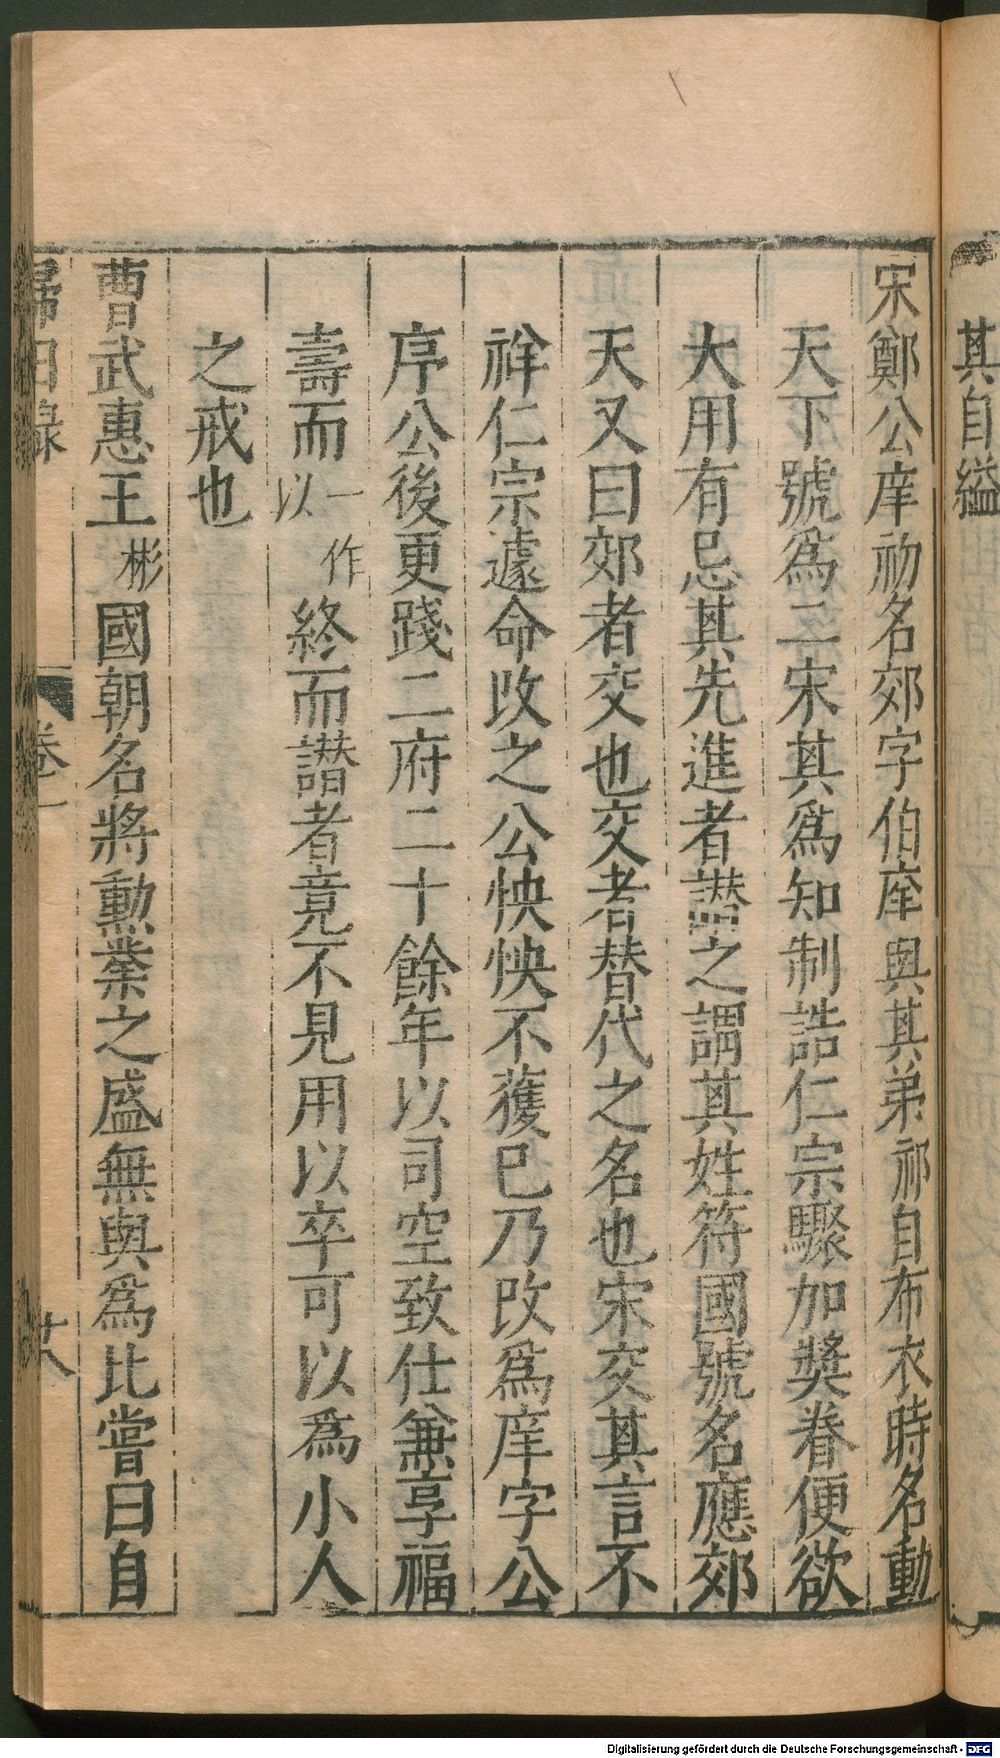 其自縊
宋鄭公庠初名郊字伯庠與其弟祁自布衣時名動
天下號爲二宋其爲知制誥仁宗驟加奬眷便欲
大用有忌其先進者譖之謂其姓符國號名應郊
天又曰郊者交也交者替代之名也宋交其言不
祥仁宗遽命攺之公怏怏不獲已乃改爲庠字公
序公後更踐二府二十餘年以司空致仕兼享福
壽而一作以終而譖者竟不見用以卒可以爲小人
之戒也
曹武惠王彬國朝名將勲業之盛無與爲比嘗曰自
歸田錄 卷一 廿八
Digitalisierung gefördert durch die Deutsche Forschungsgemeinschaft - DFG